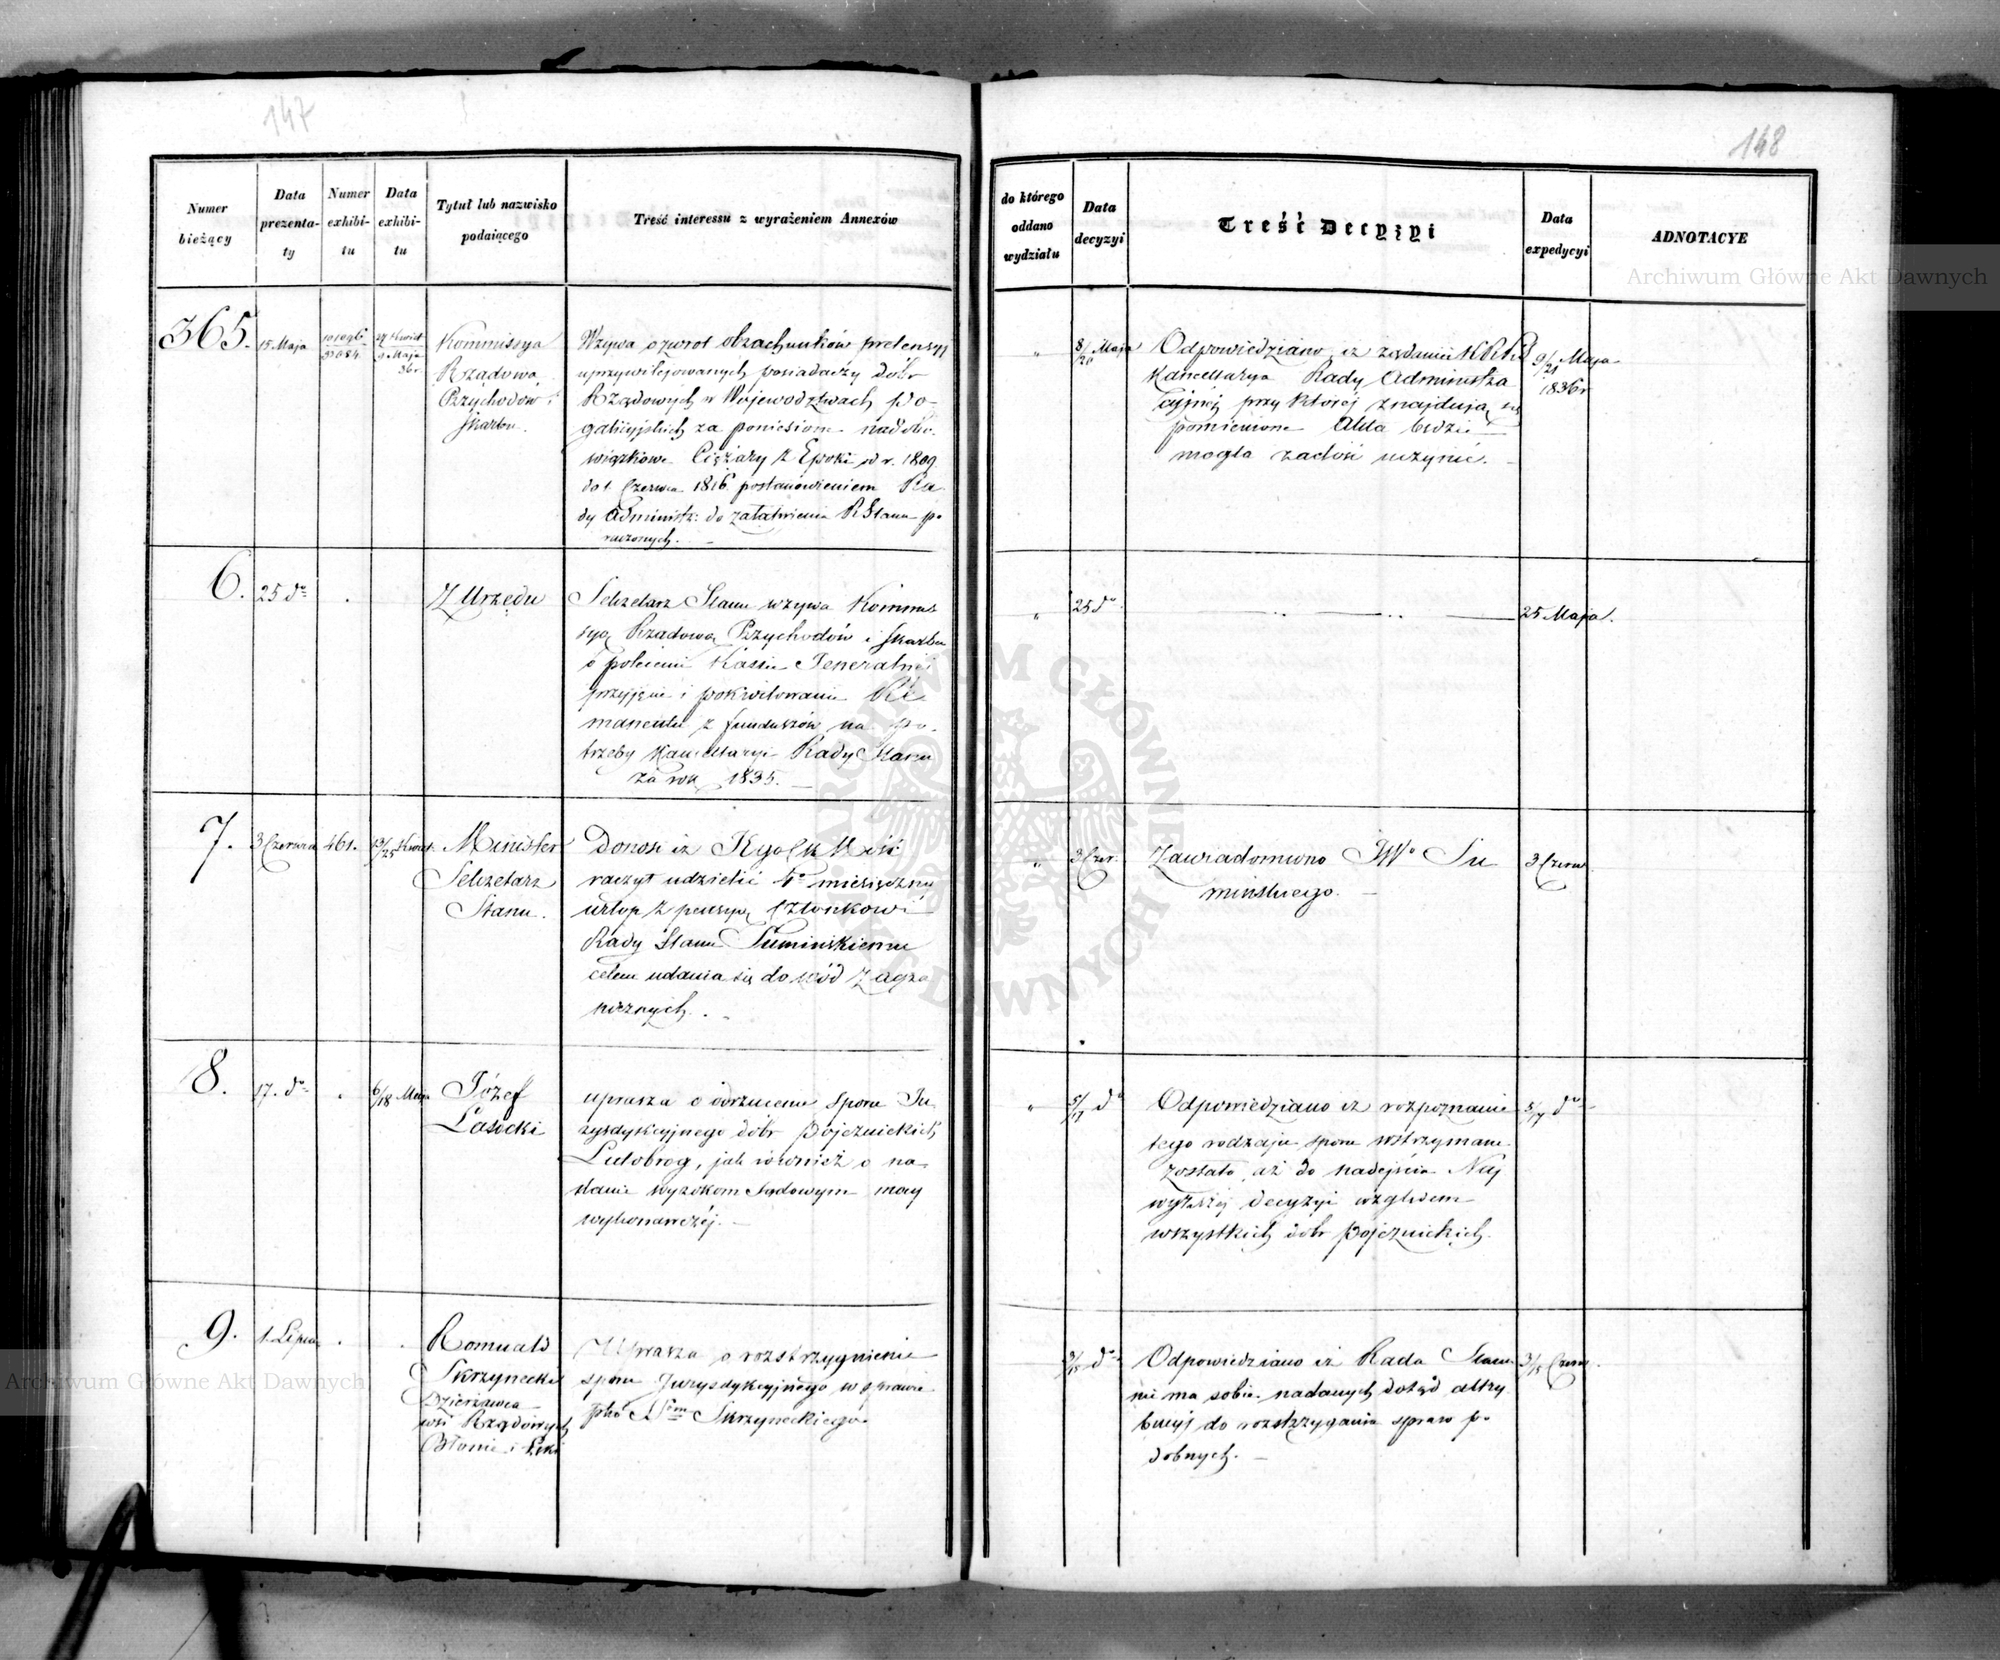 147
Numer bieżący
Data prezenta-ty
Numer exhibi-tu
Data exhibi-tu
Tytuł lub nazwisko podaiącego
Treść interessu z wyrażeniem Annexów
365.
15 Maja
27 Kwiet
9 Maja
36 r.
Kommissya
Rządowa
Przychodów i
Skarbu.
Wzywa o zwrot obrachunków pretensyj
uprzywilejowanych posiadaczy dóbr
Rządowych w Województwach po-
galicyjskich za poniesione nadobo-
wiązkowe Ciężary z Epoki od r. 1809
do 1. Czerwca 1816 postanowieniem Ra-
dy Administr: do załatwienia R Stanu po-
ruczonych.
6.
25 do
Z Urzędu
Sekretarz Stanu wzywa Kommis
syą Rządową Przychodów i Skarbu
o polecenie Kassie Jeneralnéj
przyjęcie i pokwitowanie Re
manentu z funduszów na po-
trzeby Kancellaryi Rady Stanu
za rok 1835.
7.
3 Czerwca
461.
13/25 Kwiet.
Minister
Sekretarz
Stanu.
Donosi iż
raczył udzielić miesięczny
urlop z pensyą Członkowi
Rady Stanu Sumińskiemu
celem udania się do wód zagra
nicznych.
8.
17. do
6/18 Maja
Józef
Lasocki
uprasza o odrzucenie sporu Ju
rysdykcyjnego dóbr Pojeznickich
Lutobrog, jak również o na-
danie wyrokom Sądowym mocy
wykonawczéj.
9.
1. Lipca
Romuald
Skrzynecki
Dzierżawca
wsi Rządowych
Błonie i
Uprasza o rozstrzygnienie
sporu Jurysdykcyjnego w sprawie
Skrzyneckiego.
148
do którego oddano wydziału
Data decyzyi
Treść Decyzyi
Data expedycyi
ADNOTACYE
"
8/20 Maja
Odpowiedziano, iż żądaniu
Kancellarya Rady Administra
cyjnéj przy któréj znajdują się
pomienione Akta będzie
mogła zadość uczynić.
9/21 Maja
1836 r
"
25 do
25 Maja.
"
3 Czer.
Zawiadomiono JWo Su
mińskiego.
3 Czerw
"
5/17 do
Odpowiedziano iż rozpoznanie
tego rodzaju sporu wstrzymane
zostało, aż do nadejścia Naj
wyższéj decyzyi względem
wszystkich dóbr Pojeznickich.
5/17 do
3/15 do
Odpowiedziano iż Rada Stanu
nie ma sobie nadanych dotąd attry
bucyj do rozstrzygania spraw po
dobnych.
3/15 Czerw.
Archiwum Główne Akt Dawnych
Archiwum Główne Akt Dawnych
ARCHIWUM GŁÓWNE AKT DAWNYCH